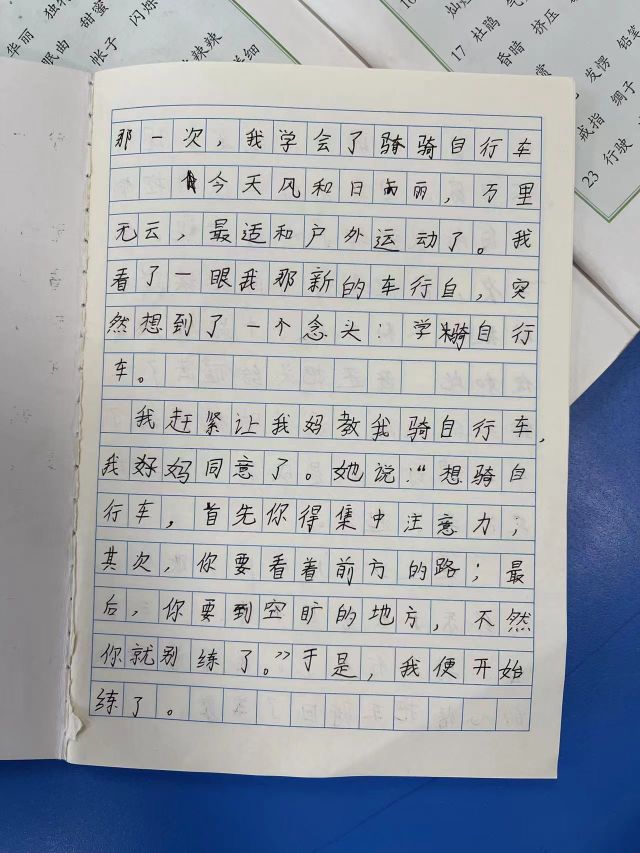 华丽 独 甜蜜
眠曲 帐子 闪烁
辣辣
细
17 杜鹃
昏暗 挤压
发愣 铅笔
戒指 绸子
23 行驶
那一次，我学会了骑骑自行车
今天风和日丽，万里
无云，最适和户外运动了。我
看了一眼我那新的车行自，突
然想到了一个念头：学骑自行
车。
我赶紧让我妈教我骑自行车，
我妈同意了。她说：“想骑自
行车，首先你得集中注意力；
其次，你要看着前方的路；最
后，你要到空旷的地方，不然
你就别练了。”于是，我便开始
练了。